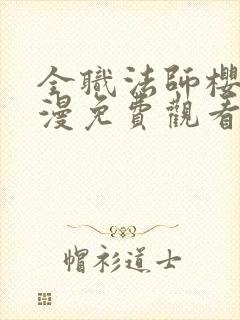 全職法師櫻
漫免費觀看
帽衫道士